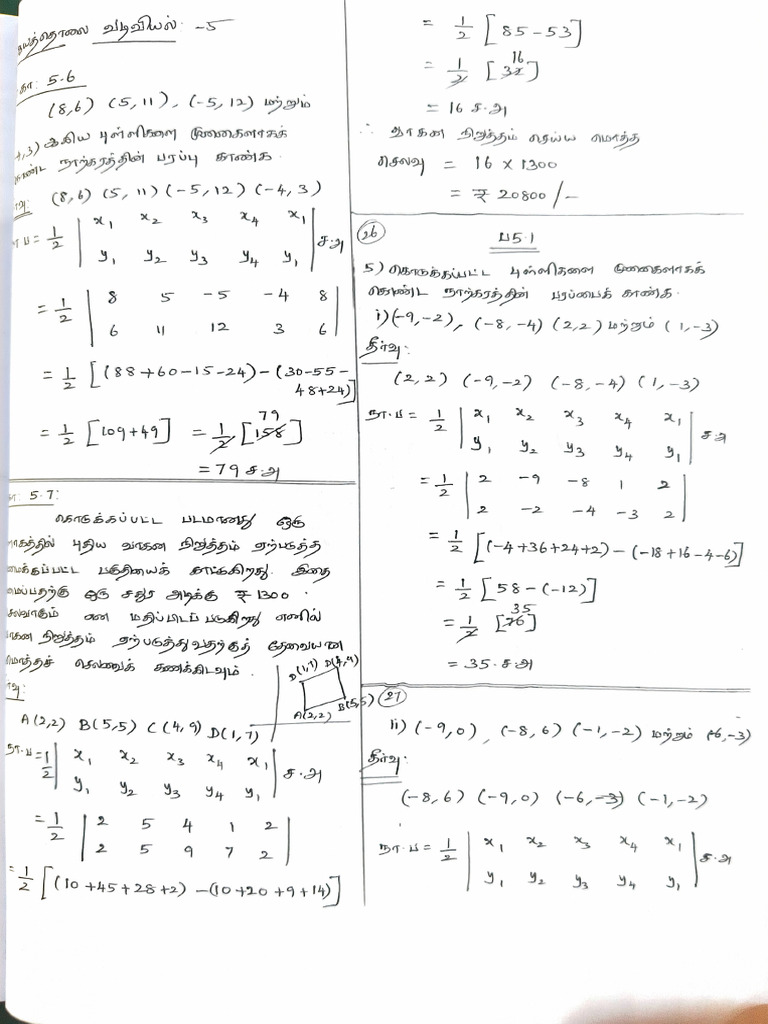 வடிவியல் -5
5.6
(8,6) (5,11), (-5,12) மற்றும்
,3) ஆகிய புள்ளிகளை முனைகளாகக்
நாற்கரத்தின் பரப்பு காண்க.
(8,6) (5,11) (-5,12) (-4,3)
= 1/2 | x₁ x₂ x₃ x₄ x₁ | ச.அ
y₁ y₂ y₃ y₄ y₁
= 1/2 | 8 5 -5 -4 8 |
6 11 12 3 6
= 1/2 [(88+60-15-24)-(30-55-
48+24)]
= 1/2 [109+49] = 1/2 [158] 79
= 79 ச.அ
5.7:
கொடுக்கப்பட்ட படமானது ஒரு
புதிய வாகன நிறுத்தம் ஏற்படுத்த
பகுதியைக் காட்டுகிறது. இதை
ஒரு சதுர அடிக்கு ₹ 1300
என மதிப்பிடப் படுகிறது எனில்
நிறுத்தம் ஏற்படுத்துவதற்குத் தேவையான
செலவுக் கணக்கிடவும்.
D(1,7) D(4,9)
A(2,2) B(5,5)
A(2,2) B(5,5) C(4,9) D(1,7)
நா.ப = 1/2 | x₁ x₂ x₃ x₄ x₁ | ச.அ
y₁ y₂ y₃ y₄ y₁
= 1/2 | 2 5 4 1 2 |
2 5 9 7 2
= 1/2 [(10+45+28+2) -(10+20+9+14)]
= 1/2 [85-53]
= 1/2 [32] 16
= 16 ச.அ
∴ வாகன நிறுத்தம் செய்ய மொத்த
செலவு = 16 x 1300
= ₹ 20800/-
26 ப5.1
5) கொடுக்கப்பட்ட புள்ளிகளை முனைகளாகக்
கொண்ட நாற்கரத்தின் பரப்பைக் காண்க.
i) (-9,-2), (-8,-4) (2,2) மற்றும் (1,-3)
தீர்வு:
(2,2) (-9,-2) (-8,-4) (1,-3)
நா.ப = 1/2 | x₁ x₂ x₃ x₄ x₁ | ச.அ
y₁ y₂ y₃ y₄ y₁
= 1/2 | 2 -9 -8 1 2 |
2 -2 -4 -3 2
= 1/2 [(-4+36+24+2) - (-18+16-4-6)]
= 1/2 [58-(-12)]
= 1/2 [70] 35
= 35 ச.அ
27
ii) (-9,0), (-8,6) (-1,-2) மற்றும் (-6,-3)
தீர்வு:
(-8,6) (-9,0) (-6,-3) (-1,-2)
நா.ப = 1/2 | x₁ x₂ x₃ x₄ x₁ | ச.அ
y₁ y₂ y₃ y₄ y₁